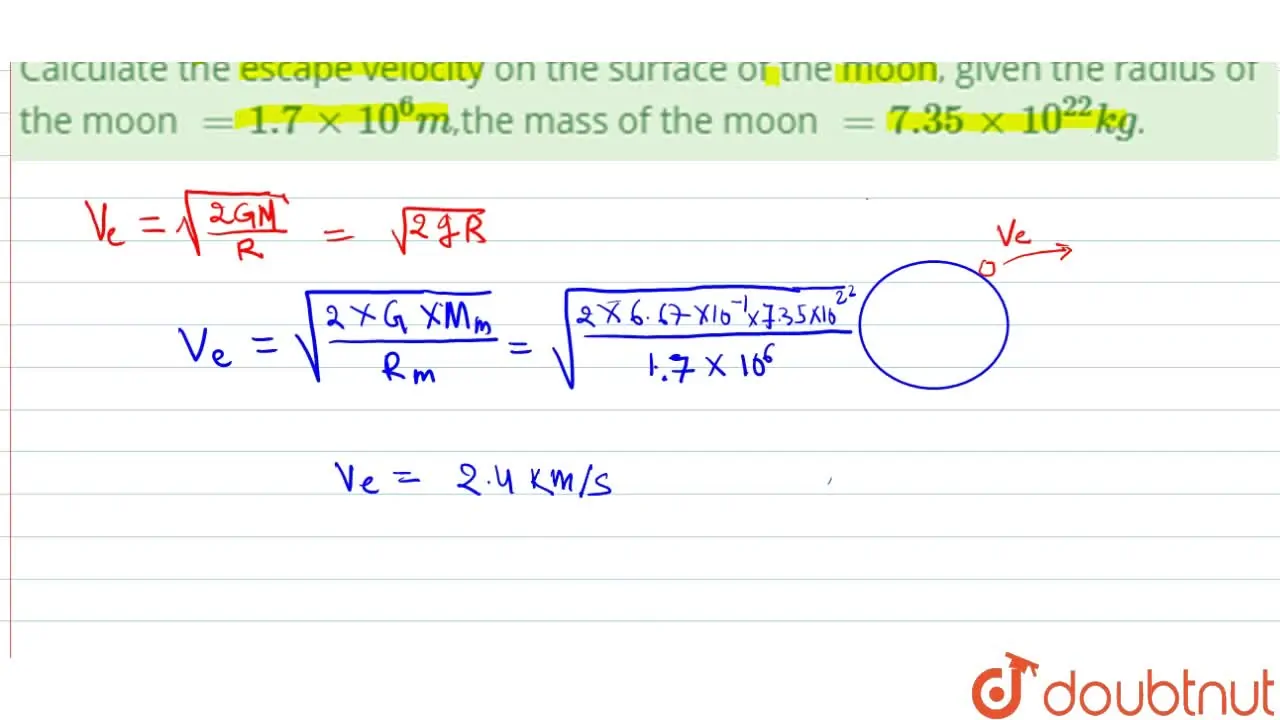 Calculate the escape velocity on the surface of the moon, given the radius of
the moon = 1.7 × 10⁶m,the mass of the moon = 7.35 × 10²²kg.
Ve = √(2GM/R) = √2gR
Ve
Ve = √(2×G×Mm/Rm) = √(2×6.67×10⁻¹×7.35×10²²/1.7×10⁶)
Ve = 2.4 Km/s
doubtnut